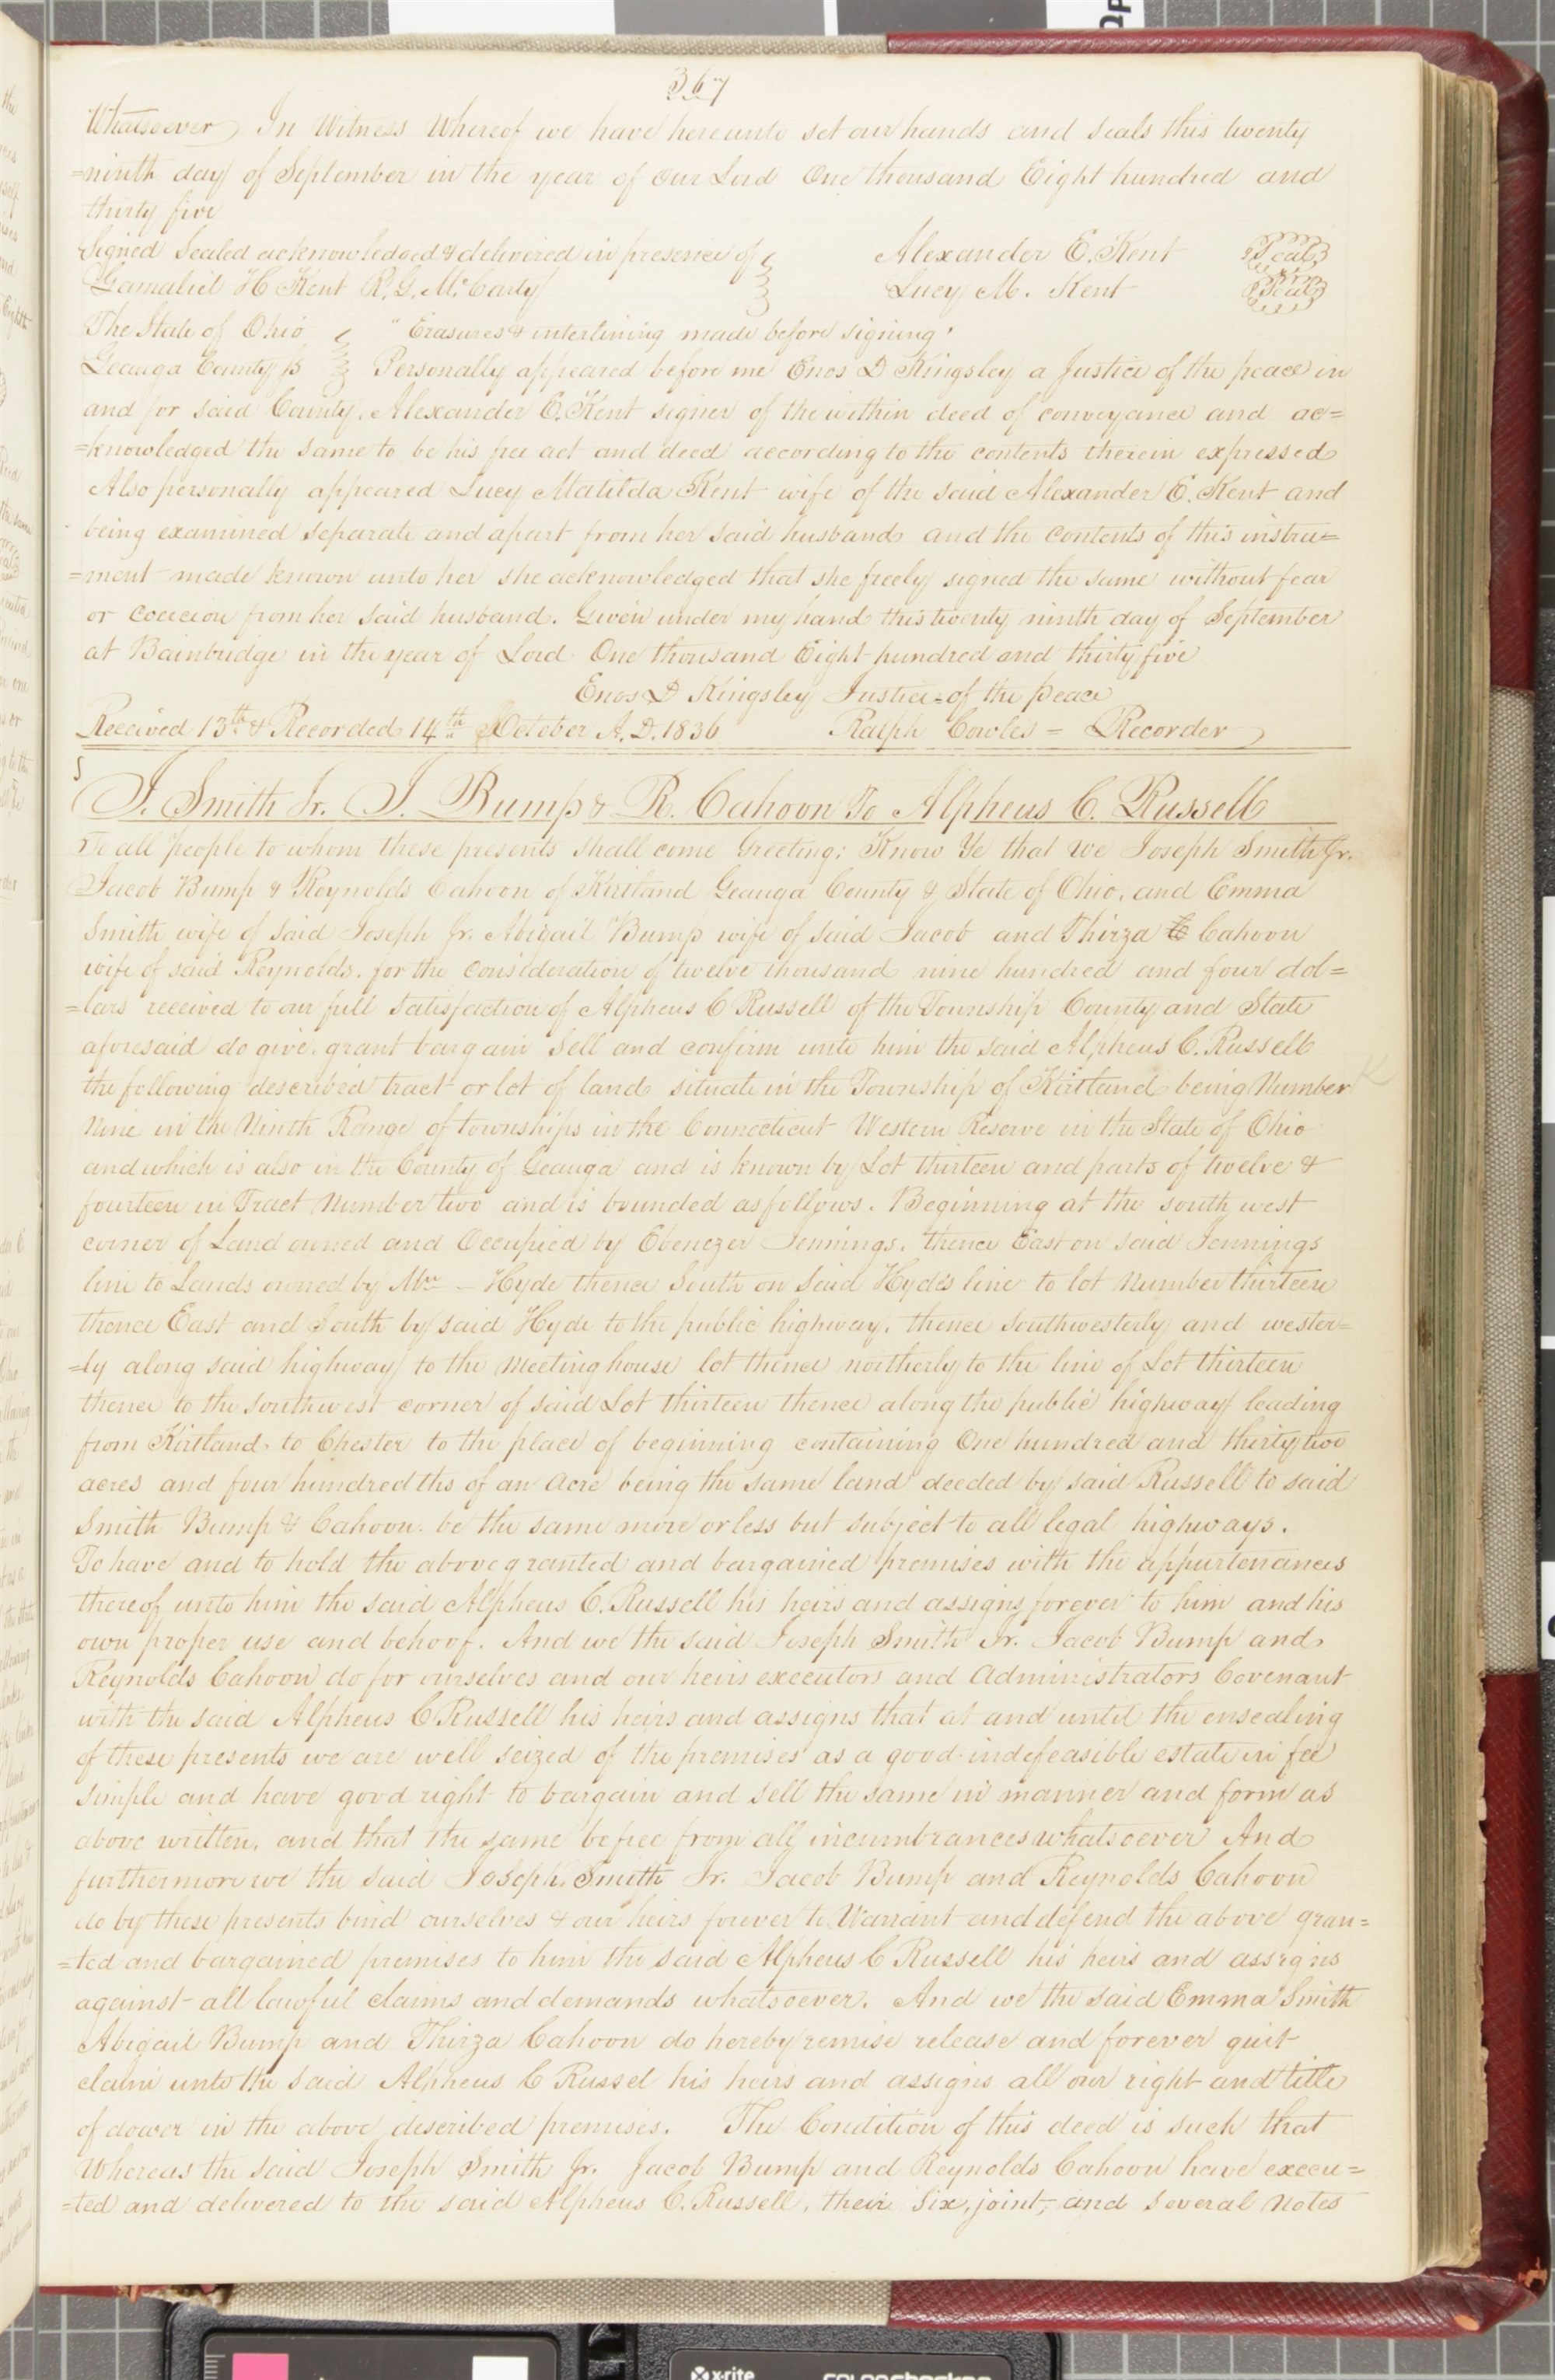 367
Whatsoever, In Witness Whereof we have hereunto set our hands and seals this twenty
=ninth day of September in the year of our Lord One thousand Eight hundred and
thirty five
Signed Sealed acknowledged & delivered in presence of Alexander E. Kent Seal
Gamaliel H Kent R. G. McCarty Lucy M. Kent Seal
The State of Ohio "Erasures & interlining made before signing"
Geauga County ss Personally appeared before me Enos D Kingsley a Justice of the peace in
and for said County, Alexander E. Kent signer of the within deed of conveyance and ac=
=knowledged the same to be his free act and deed according to the contents therein expressed
Also personally appeared Lucy Matilda Kent wife of the said Alexander E. Kent and
being examined separate and apart from her said husband and the contents of this instru=
=ment made known unto her she acknowledged that she freely signed the same without fear
or coercion from her said husband. Given under my hand this twenty ninth day of September
at Bainbridge in the year of Lord One thousand Eight hundred and thirty five
Enos D Kingsley Justice of the peace
Received 13th & Recorded 14th October A.D. 1836 Ralph Cowles = Recorder
J. Smith Jr. J. Bump & R. Cahoon To Alpheus C. Russell
To all people to whom these presents shall come Greeting; Know Ye that We Joseph Smith Jr.
Jacob Bump & Reynolds Cahoon of Kirtland Geauga County & State of Ohio, and Emma
Smith wife of said Joseph Jr. Abigail Bump wife of said Jacob and Thirza Cahoon
wife of said Reynolds. for the consideration of twelve thousand nine hundred and four dol=
=lars received to our full satisfaction of Alpheus C Russell of the Township County and State
aforesaid do give. grant bargain sell and confirm unto him the said Alpheus C. Russell
the following described tract or lot of land situate in the Township of Kirtland being Number
Nine in the Ninth Range of townships in the Connecticut Western Reserve in the State of Ohio
and which is also in the County of Geauga and is known by Lot thirteen and parts of twelve &
fourteen in Tract Number two and is bounded as follows. Beginning at the south west
corner of Land owned and Occupied by Ebenezer Jennings. thence East on said Jennings
line to Lands owned by Mr – Hyde thence South on said Hydes line to lot Number thirteen
thence East and South by said Hyde to the public highway. thence Southwesterly and wester=
=ly along said highway to the Meeting house lot thence northerly to the line of Lot thirteen
thence to the southwest corner of said Lot thirteen thence along the public highway leading
from Kirtland, to Chester to the place of beginning containing One hundred and thirty two
acres and four hundredths of an Acre being the same land deeded by said Russell to said
Smith Bump & Cahoon. be the same more or less but subject to all legal highways.
To have and to hold the above granted and bargained premises with the appurtenances
thereof unto him the said Alpheus C. Russell his heirs and assigns forever to him and his
own proper use and behoof. And we the said Joseph Smith Jr. Jacob Bump and
Reynolds Cahoon do for ourselves and our heirs executors and Administrators Covenant
with the said Alpheus C Russell his heirs and assigns that at and until the ensealing
of these presents we are well seized of the premises as a good indefeasible estate in fee
simple and have good right to bargain and sell the same in manner and form as
above written, and that the same be free from all incumbrances whatsoever And
furthermore we the said Joseph Smith Jr. Jacob Bump and Reynolds Cahoon
do by these presents bind ourselves & our heirs forever to Warrant and defend the above gran=
=ted and bargained premises to him the said Alpheus C Russell his heirs and assigns
against all lawful claims and demands whatsoever. And we the said Emma Smith
Abigail Bump and Thirza Cahoon do hereby remise release and forever quit
claim unto the said Alpheus C Russel his heirs and assigns all our right and title
of dower in the above described premises. The Condition of this deed is such that
Whereas the said Joseph Smith Jr. Jacob Bump and Reynolds Cahoon have execu=
=ted and delivered to the said Alpheus C. Russell, their six, joint, and several notes
x-rite